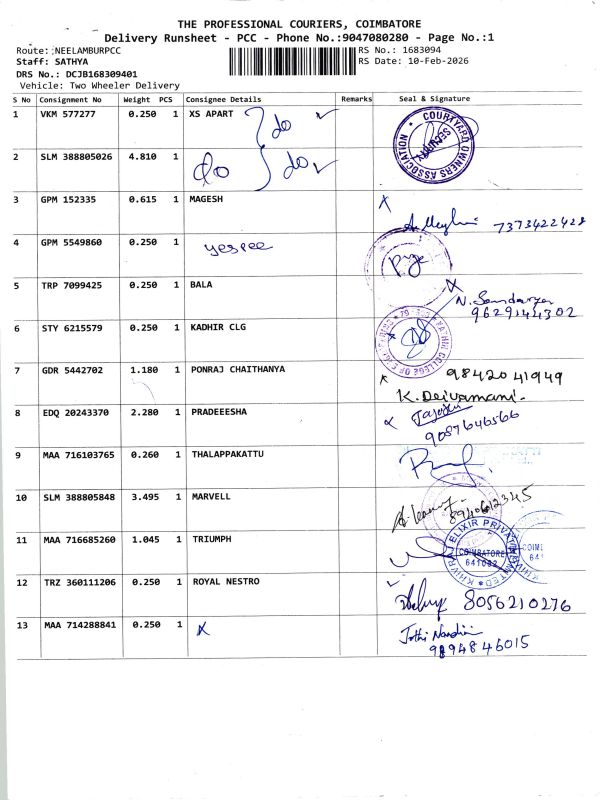 THE PROFESSIONAL COURIERS, COIMBATORE
Delivery Runsheet - PCC - Phone No.:9047080280 - Page No.:1
Route: NEELAMBURPCC
RS No.: 1683094
Staff: SATHYA
RS Date: 10-Feb-2026
DRS No.: DCJB168309401
Vehicle: Two Wheeler Delivery
S No Consignment No Weight PCS Consignee Details Remarks Seal & Signature
1 VKM 577277 0.250 1 XS APART do
COURTYARD OWNERS ASSOCIATION * SECURITY
2 SLM 388805026 4.810 1 do do
3 GPM 152335 0.615 1 MAGESH
7373422428
4 GPM 5549860 0.250 1 yespee
5 TRP 7099425 0.250 1 BALA
N. Soundarya
9629144302
6 STY 6215579 0.250 1 KADHIR CLG
COLLEGE OF
7 GDR 5442702 1.180 1 PONRAJ CHAITHANYA
9842041949
K. Deivamani.
8 EDQ 20243370 2.280 1 PRADEEESHA
9087646566
9 MAA 716103765 0.260 1 THALAPPAKATTU
10 SLM 388805848 3.495 1 MARVELL
8940612345
11 MAA 716685260 1.045 1 TRIUMPH
ELIXIR PRIVATE
COIMBATORE
641062
12 TRZ 360111206 0.250 1 ROYAL NESTRO
8056210276
13 MAA 714288841 0.250 1 x
Jothi Nandini
9894846015